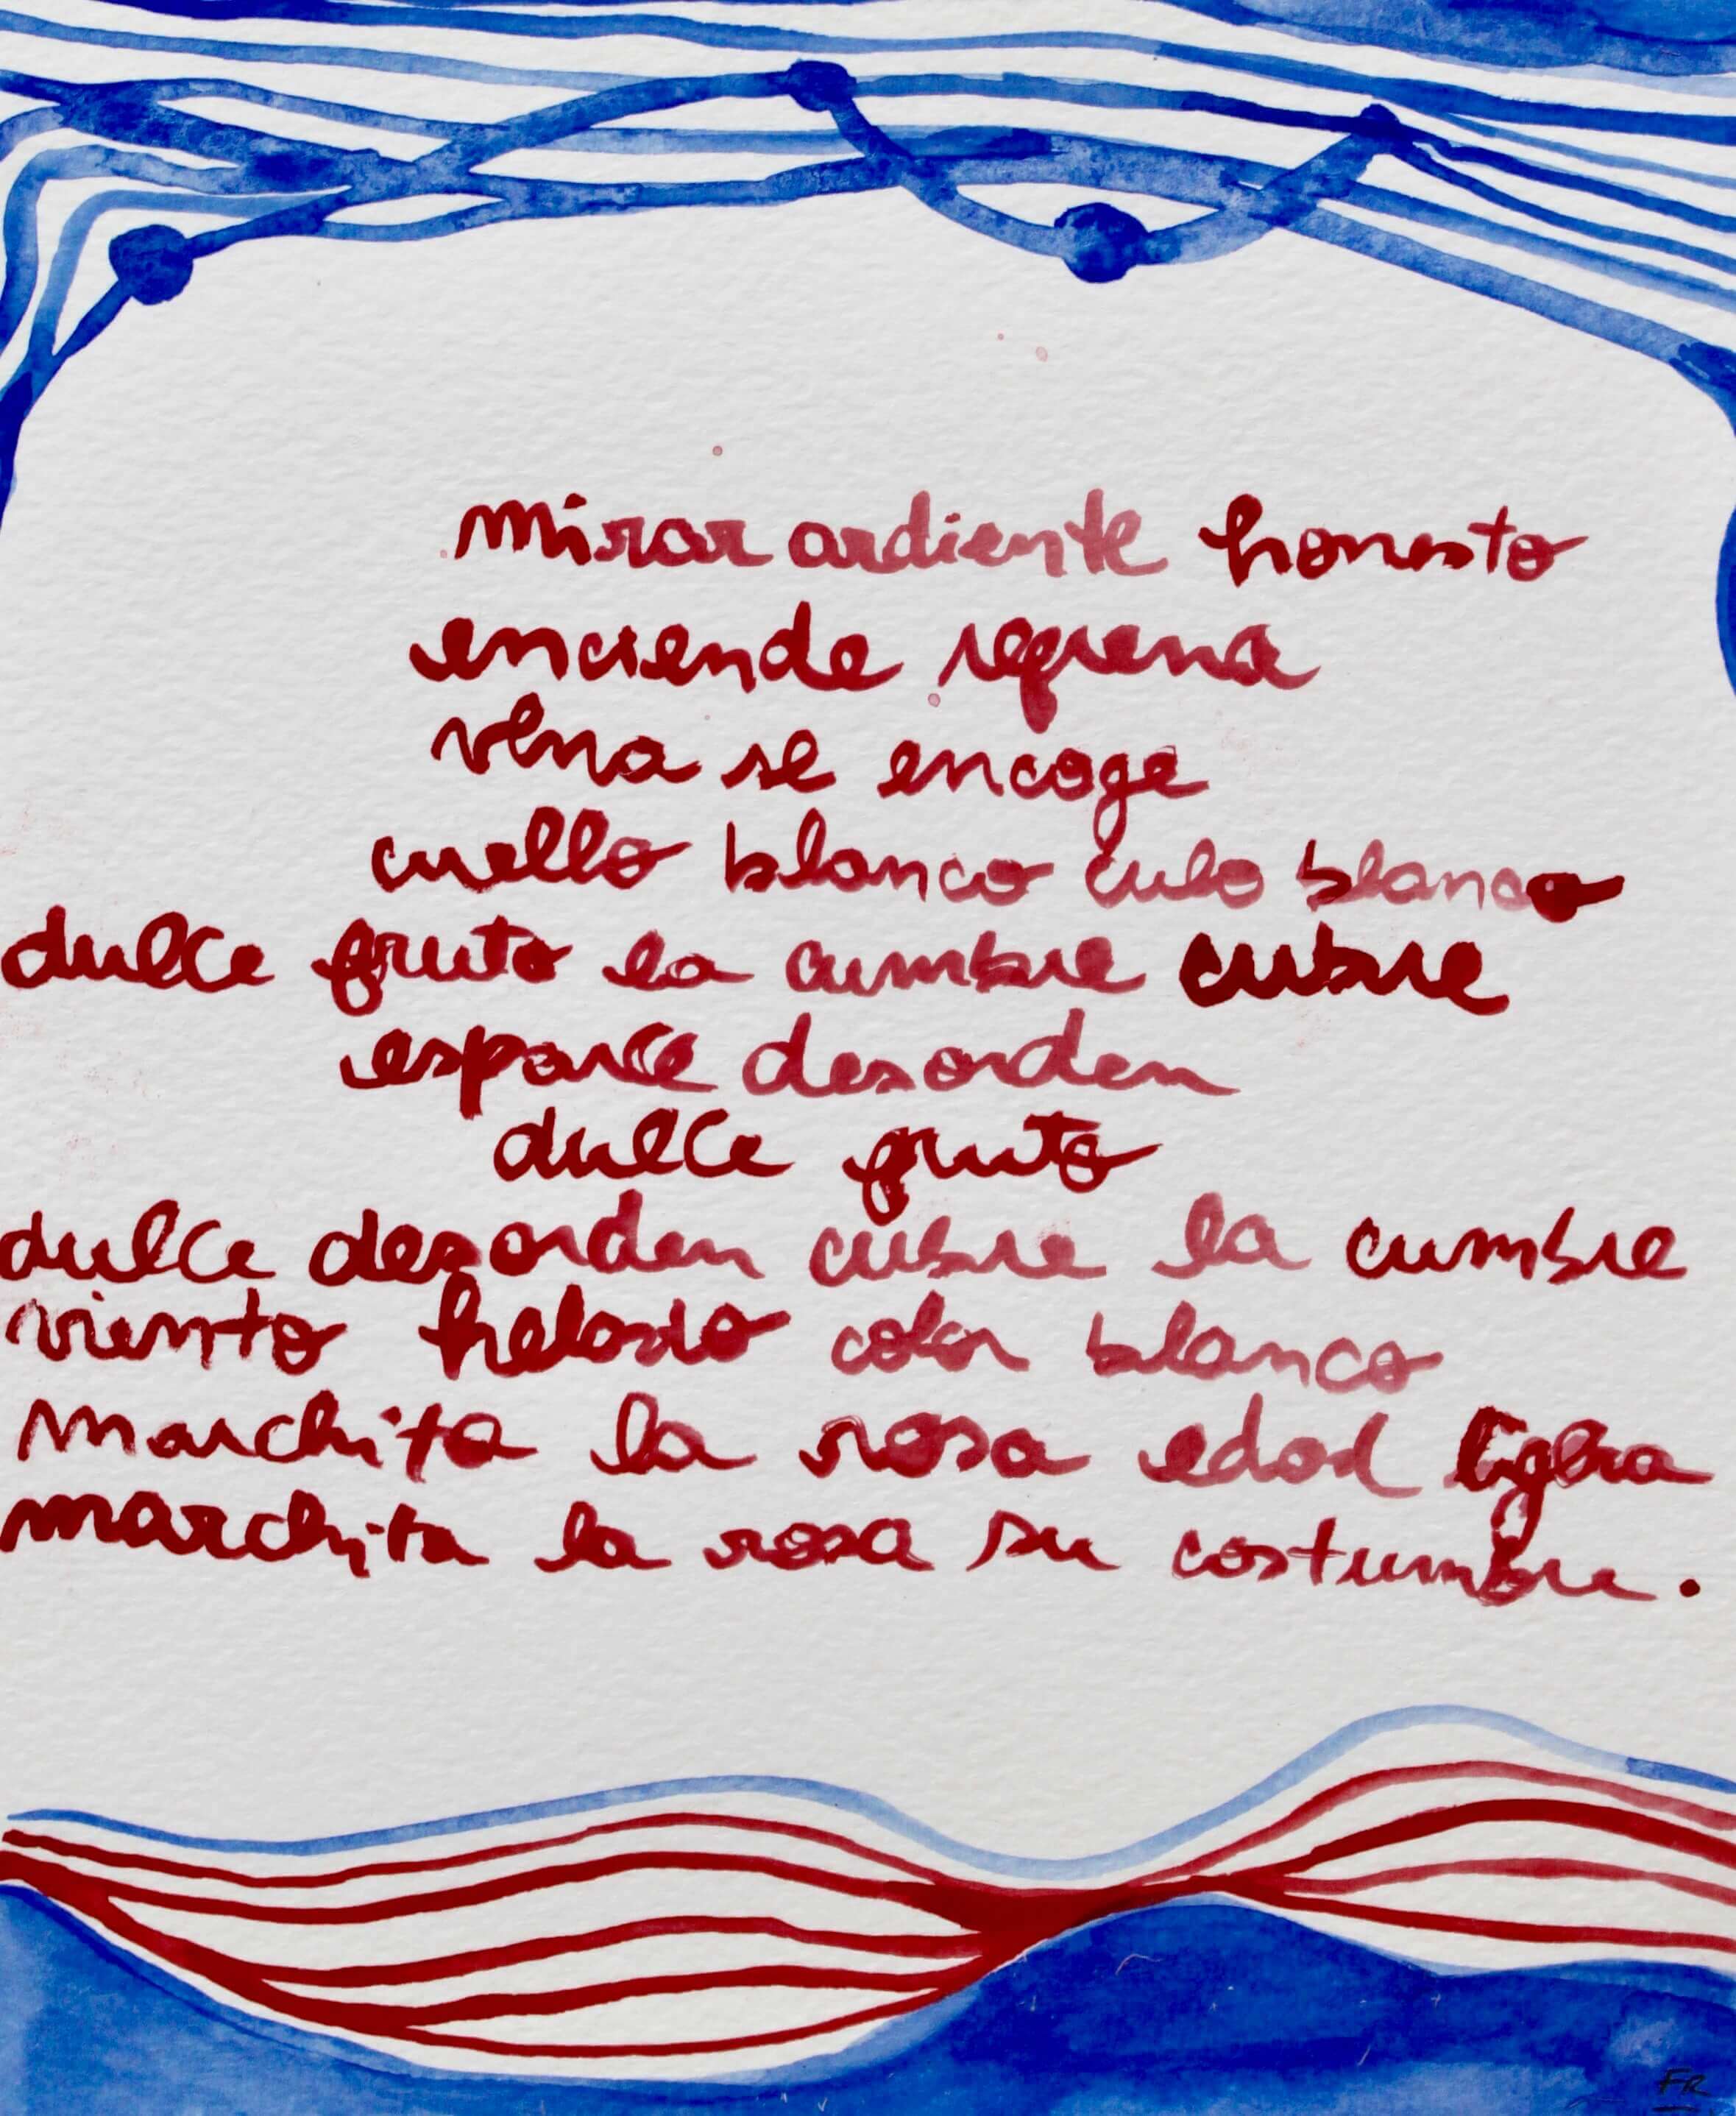 mirar ardiente honesto
enciende refrena
vena se encoge
cuello blanco culo blanco
dulce fruto la cumbre cubre
esparce desorden
dulce fruto
dulce desorden cubre la cumbre
viento helado color blanco
marchita la rosa edad ligera
marchita la rosa su costumbre.
FR